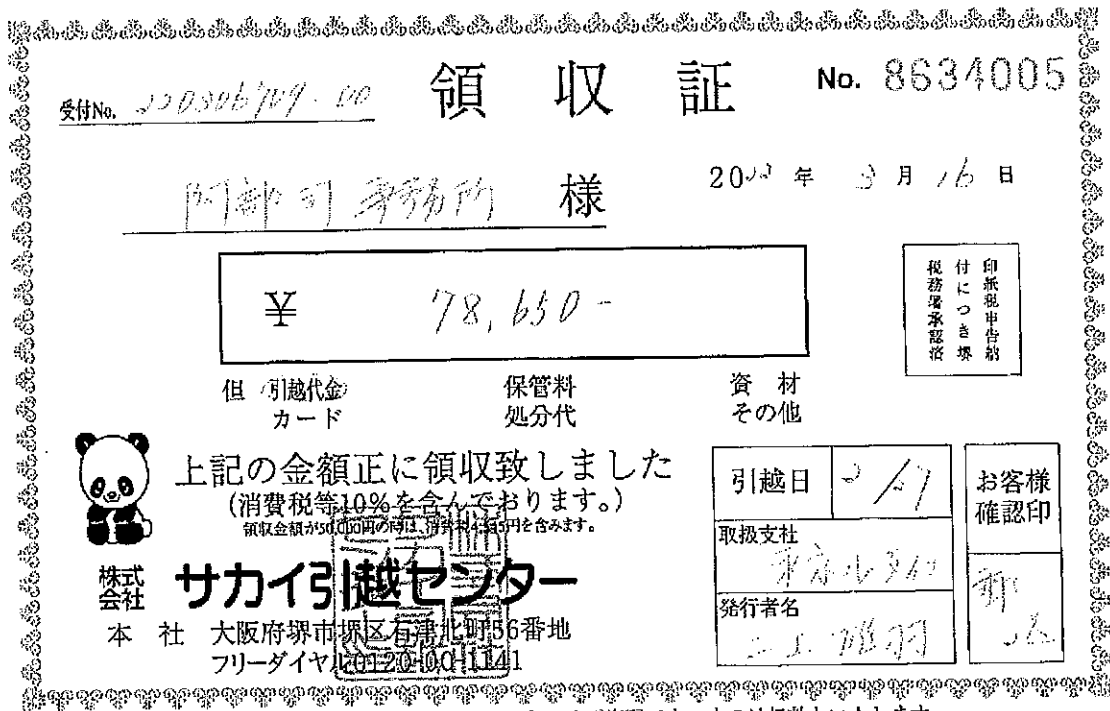 領 収 証
No. 8634005
受付No.
阿部司事務所 様
2022 年 3 月 16 日
¥ 78,650-
印紙税申告納
付につき堺
税務署承認済
但 引越代金 保管料 資 材
カード 処分代 その他
上記の金額正に領収致しました
(消費税等10%を含んでおります。)
領収金額が50,000円の時は、消費税4,545円を含みます。
株式会社 サカイ引越センター
本 社 大阪府堺市堺区石津北町56番地
フリーダイヤル0120-00-1141
引越日
取扱支社
発行者名
お客様
確認印